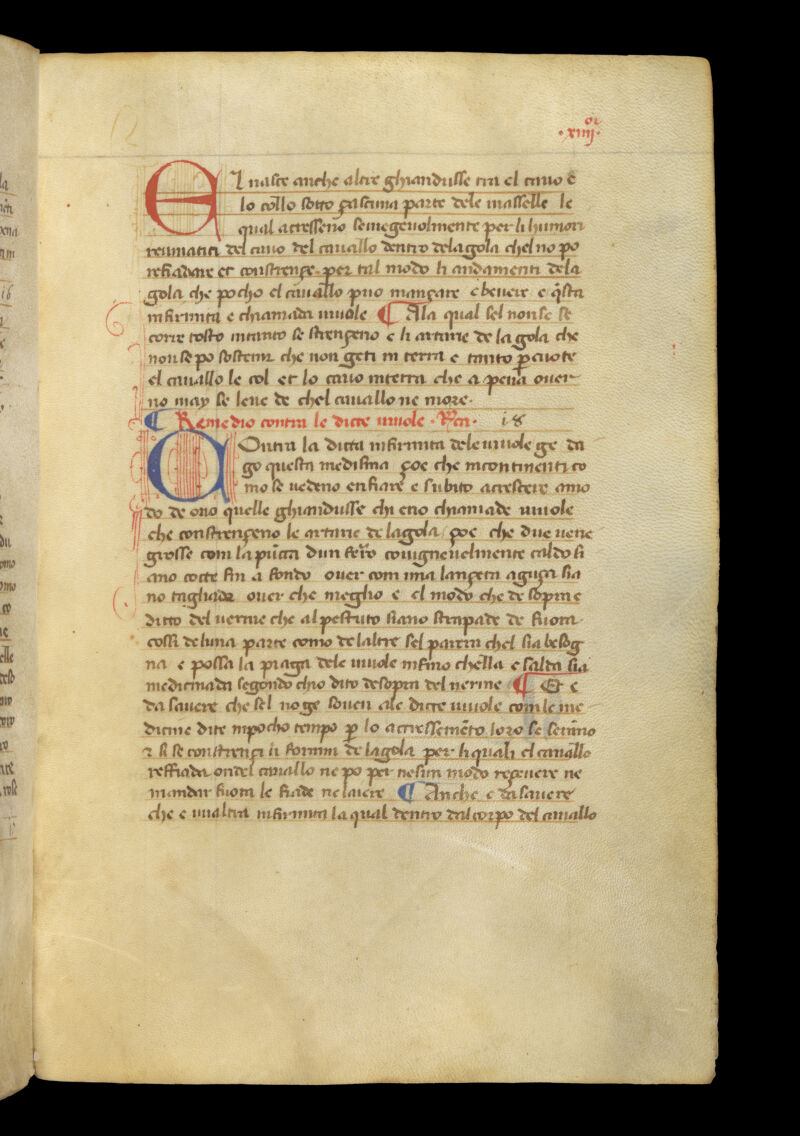 .xiiij.
El nasce anche altre ghiandusse tra el cavo e
lo collo sotto çascuna parte dele masselle le
qual acresseno semegevolmente per li humori
reumatici del cavo del cavallo dentro dela gola chel no po
refiadare et constrenge per tal modo li andamenti dela
gola che pocho el cavallo puo mançare e bevere e q̃sta
infirmita e chiamada vivole ¶ Ala qual sel non se se
core tosto intanto se strengeno e li arturie de la gola che
non se po sostenir che non geti in terra e tanto p̲cuote
el cavallo le col et lo cavo in terra che a pena over
no may se leve de chel cavallo ne more.
¶ Remedio contra le dicte vivole . Rca. 18
COntra la dicta infirmita dele vivole ge da
go questa medisina çoe che incontinenti co
mo se vedeno enfiare e subito acrescere amo
do de ono quelle ghiandusse chi eno chiamade vivole
che constrengeno le arturie de la gola çoe che due vene
grosse com la pũta dun fer̃o covignevelmente caldo si
ano cocte fin a fondo over com una lançeta aguça sia
no tagliada over che meglio e el modo che de sopra e
ditto del verme che al pestuto siano strapade de fuora
cossi de luna parte como de laltre sel parera chel sia besog
na e possa la piaga dele vivole infino chella e salda sia
medicinada segondo chio dito de sopra del verme ¶ Et e
da savere che sel no ge soven ale dicte vivole com le me
dicine dite in pocho tempo p̲ lo acressemẽto loro se serano
⁊ si se constrençi li forami de la gola per li quali el cavallo
reffiada ondel cavallo ne po per nesun modo reçevere ne
mandar fuora le fiade ne lavere ¶ Anche e da savere
che e unaltra infirmita la qual dentro dal corpo del cavallo